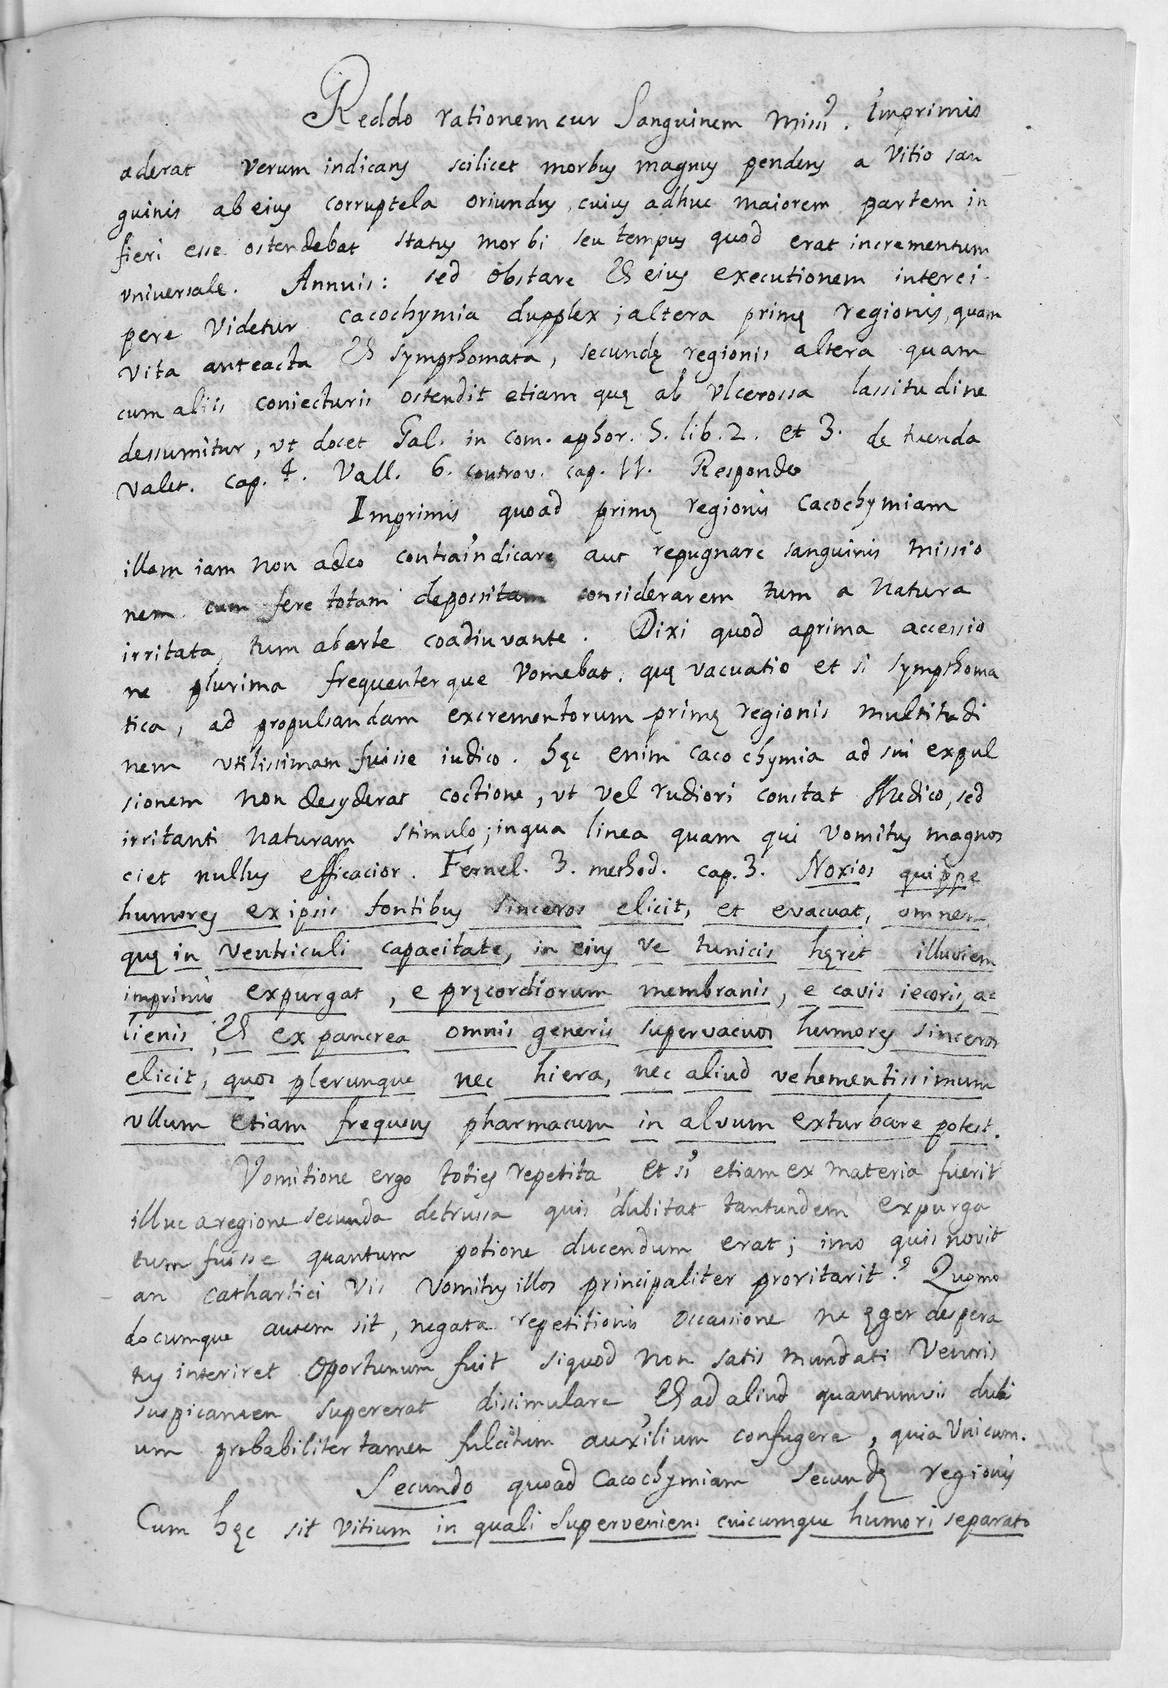 Reddo rationem cur Sanguinem missi. Imprimis
aderat verum indicans scilicet morbus magnus pendens a Vitio san
guinis ab eius corruptela oriundus, cuius adhuc maiorem partem in
fieri esse ostendebat status morbi seu tempus quod erat incrementum
vniversale. Annuis: sed obstare & eius executionem interci
pere Videtur cacochymia dupplex; altera primę regionis, quam
vita anteacta & symphomata, secundę regionis altera quam
cum aliis coniecturis ostendit etiam quę ab vlcerossa lassitudine
dessumitur, vt docet Gal. in com. aphor. 5. lib. 2. et 3. de tuenda
valet. cap. 4. Vall. 6. controv. cap. 11. Respondeo
Imprimis quoad primę regionis cacochymiam
illam iam non adeo contraindicare aut repugnare sanguinis missio
nem cum fere totam depossitam considerarem tum a Natura
irritata, tum ab arte coadiuvante. Dixi quod a prima accessio
ne plurima frequenterque vomebat, quę vacuatio et si symphoma
tica, ad propulsandam excrementorum primę regionis multitudi
nem vtilissimam fuisse iudico. hęc enim cacochymia ad sui expul
sionem non desyderat coctione, vt vel rudiori constat Medico, sed
irritanti naturam stimulo; in qua linea quam qui vomitus magnos
ciet nullus efficacior. Fernel. 3. method. cap. 3. Noxios quippe
humores ex ipsis fontibus sinceros elicit, et evacuat, omnem
quę in ventriculi capacitate, in eius ve tunicis hęret illuviem
imprimis expurgat, e pręcordiorum membranis, e cavis iecoris, ac
lienis, & ex pancrea omnis generis supervacuos humores sinceros
elicit, quos plerunque nec hiera, nec aliud vehementissimum
vllum etiam frequens pharmacum in alvum exturbare potest.
Vomitione ergo toties repetita, et si etiam ex materia fuerit
illuc a regione secunda detrussa quis dubitat tantundem expurga
tum fuisse quantum potione ducendum erat; imo quis novit
an cathartici Vis vomitus illos principaliter proritarit? Quomo
documque autem sit, negata repetitionis occassione ne ęger despera
tus interiret oportunum fuit siquod non satis mundati Ventris
suspicamen supererat dissimulare & ad aliud quantumvis dubi
um probabiliter tamen fulcitum auxilium confugere, quia Vnicum.
Secundo quoad Cacochymiam secundę regionis
Cum hęc sit vitium in quali superveniens cuicumque humori separato